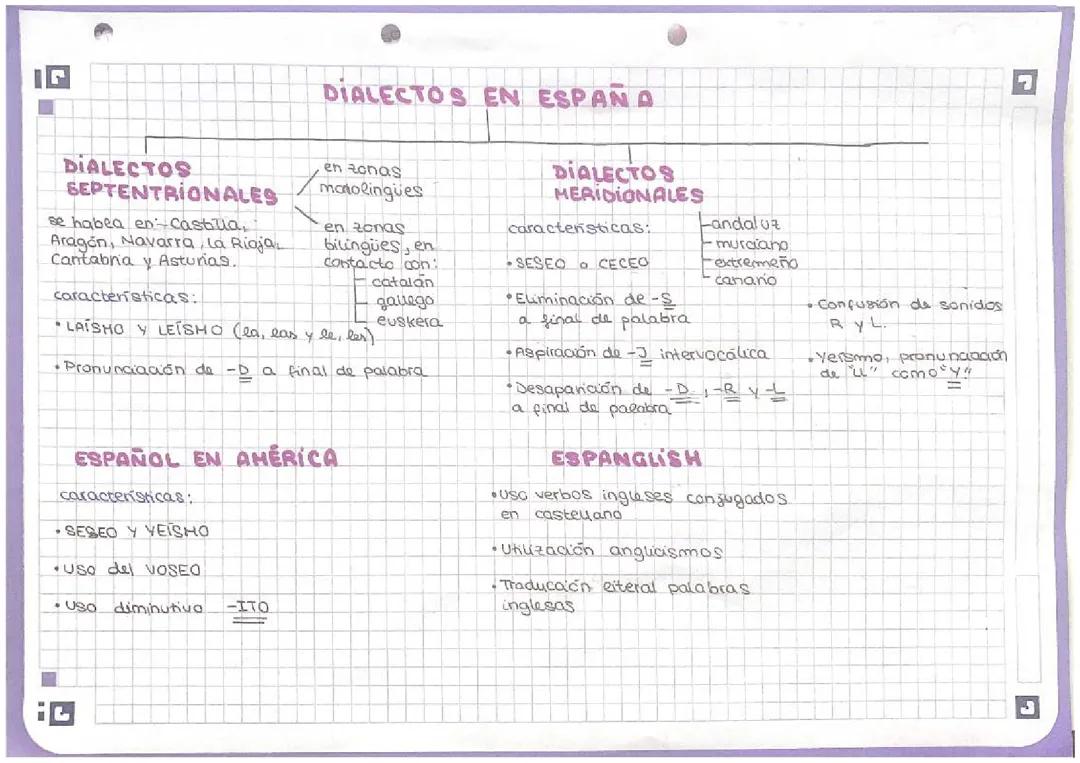 DIALECTOS EN ESPAÑA
DIALECTOS
SEPTENTRIONALES
en zonas
monolingües
se habla en: Castilla,
Aragón, Navarra, La Rioja,
Cantabria y Asturias.
en zonas
bilingües, en
contacto con:
catalán
gallego
euskera
características:
• LAÍSMO Y LEÍSMO (la, las y le, les)
• Pronunciación de -D a final de palabra
DIALECTOS
MERIDIONALES
andaluz
murciano
extremeño
canario
características:
• SESEO o CECEO
• Eliminación de -S
a final de palabra
• Aspiración de -J intervocálica
• Desaparición de -D, -R y -L
a final de palabra
• Confusión de sonidos
R y L.
• Yeísmo, pronunciación
de "LL" como "Y"
ESPAÑOL EN AMÉRICA
características:
• SESEO Y YEÍSMO
• USO del VOSEO
• USO diminutivo -ITO
ESPANGLISH
• USO verbos ingleses conjugados
en castellano
• Utilización anglicismos
• Traducción literal palabras
inglesas